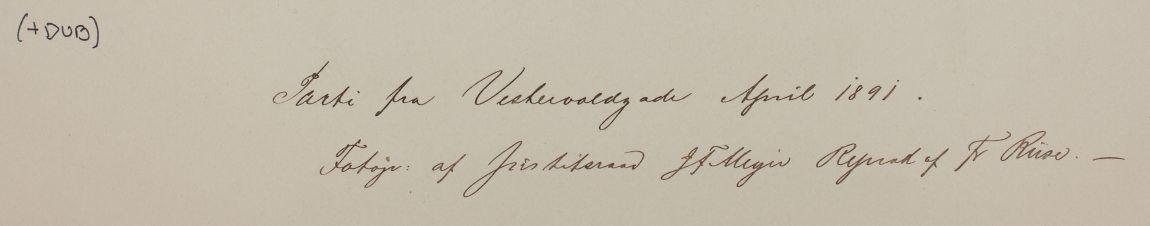 (+DUB)
Parti fra Vestervoldgade April 1891.
Fotogr: af Justitsraad J F Meyer Reprod af Fr Riise. —